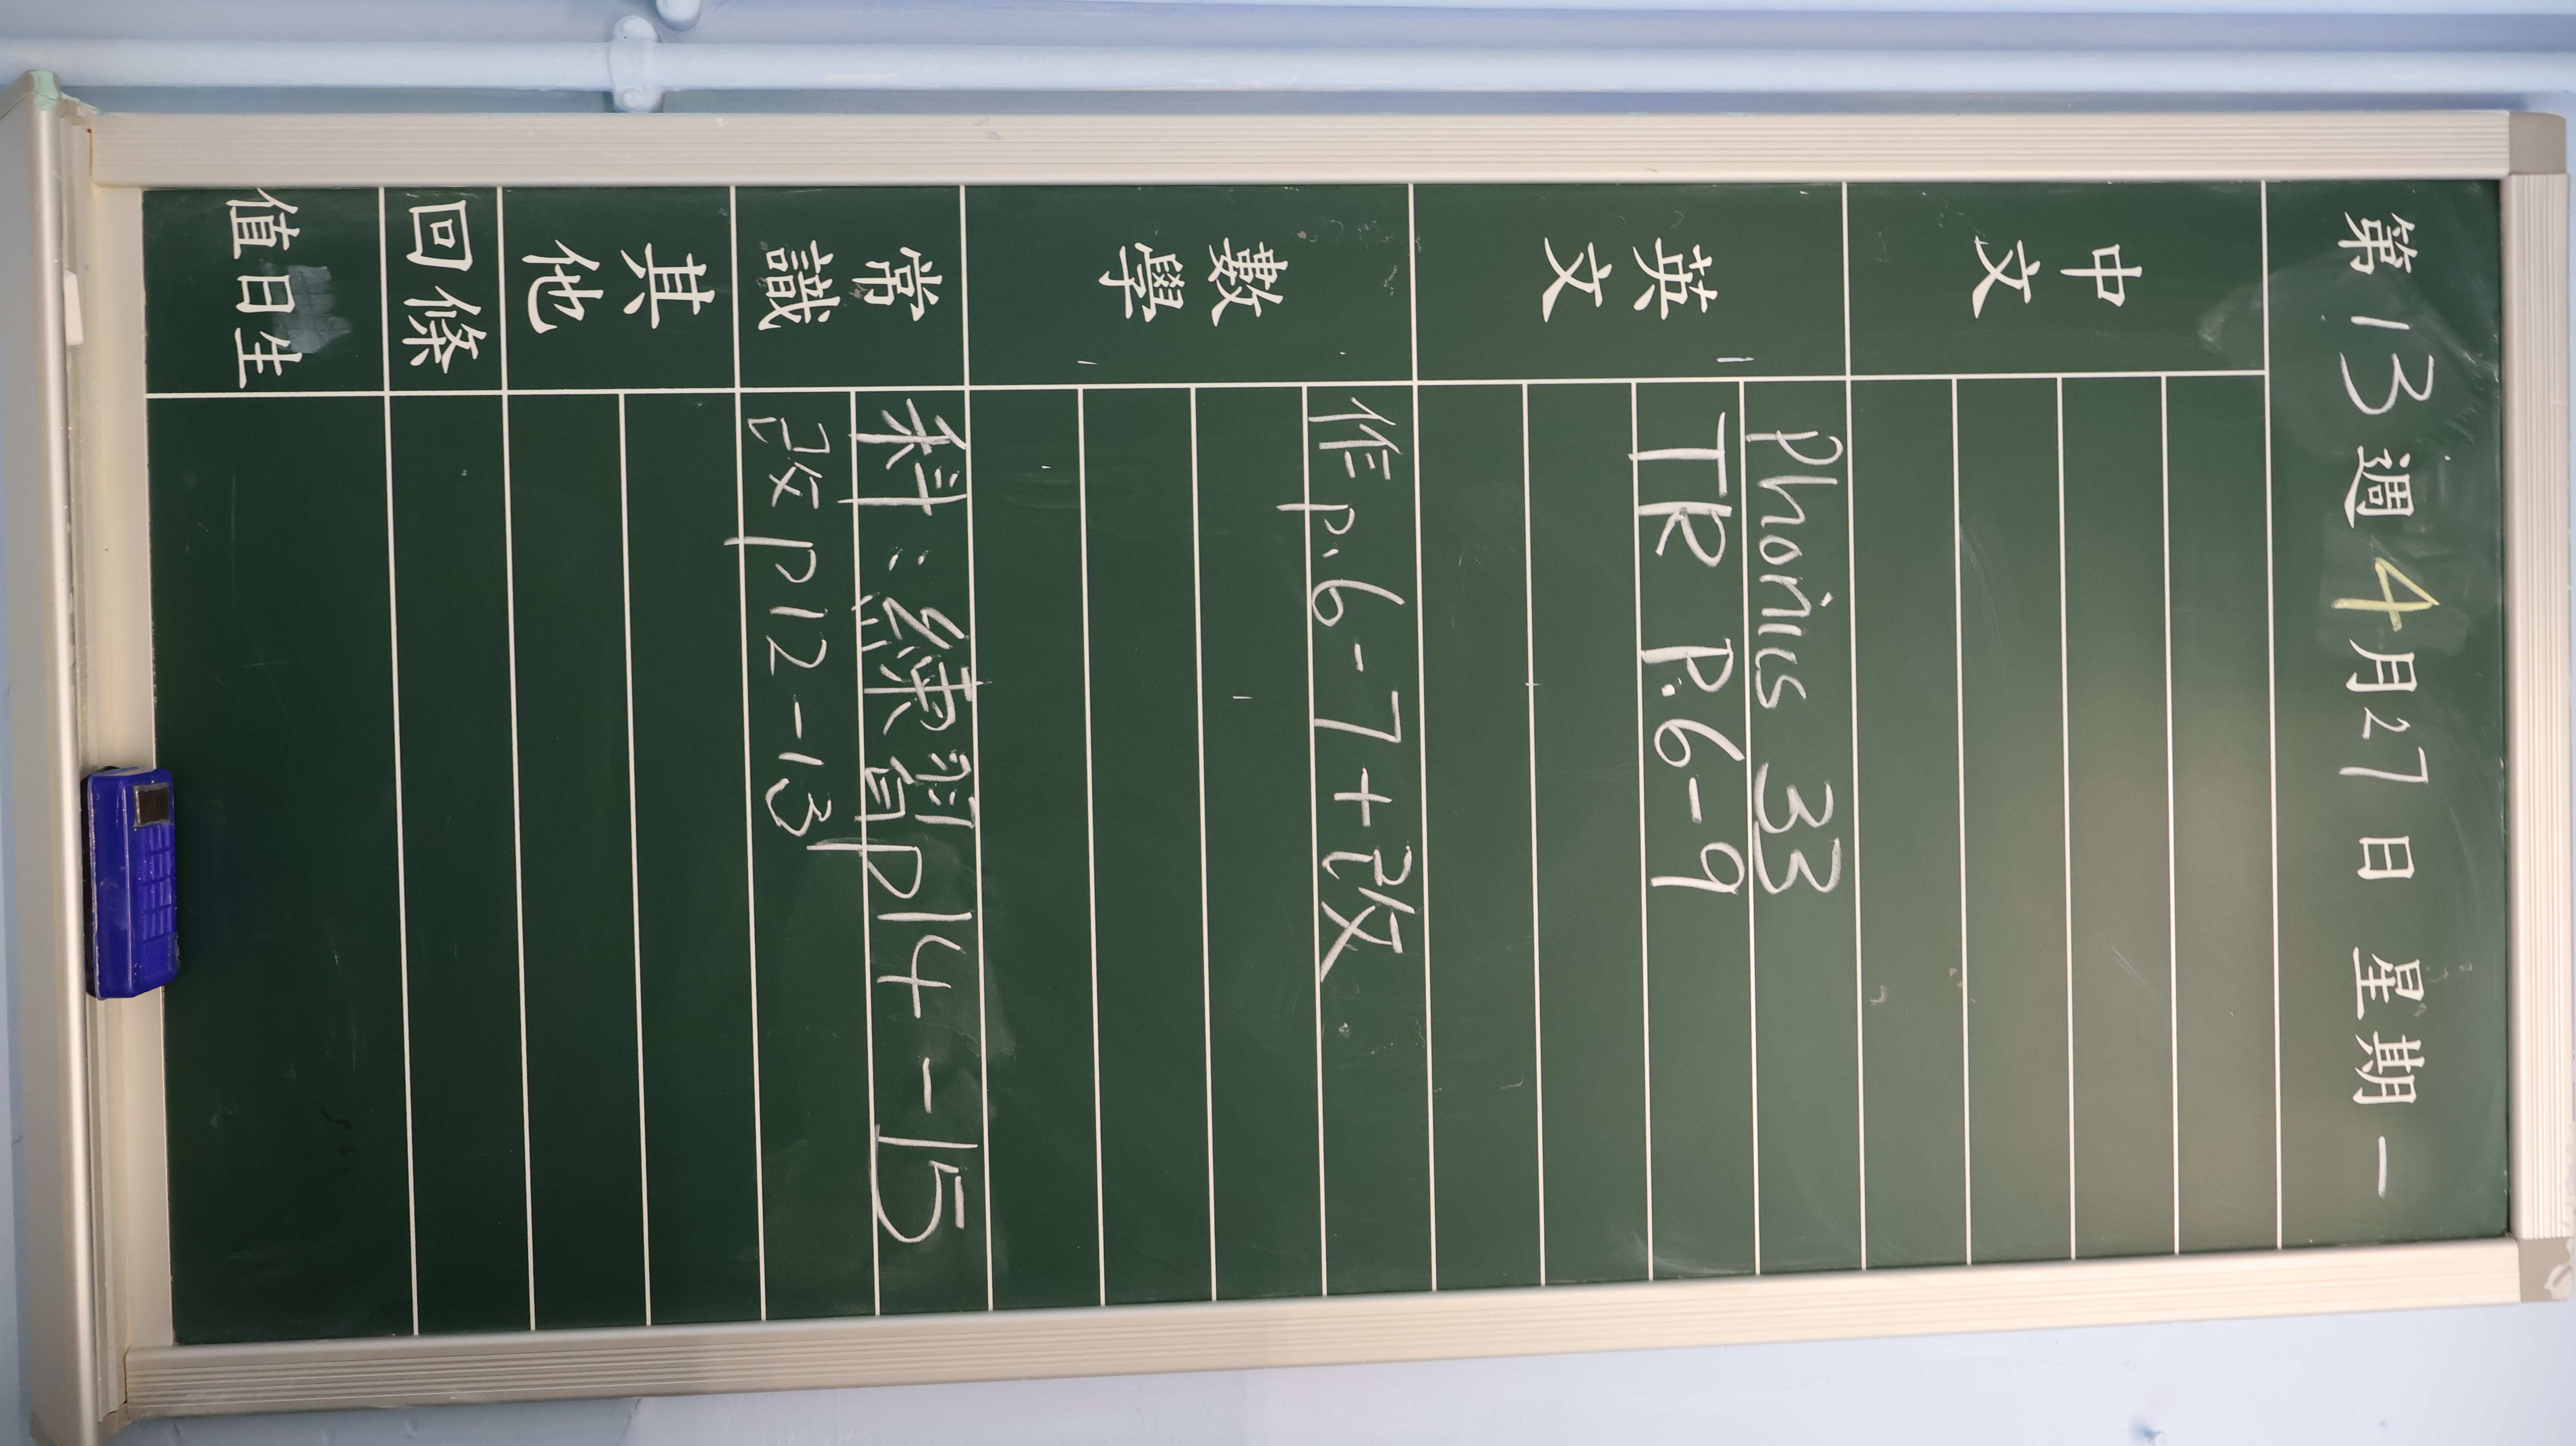 第13週 4月27日 星期一
中文
英文
Phonics 33
TR P.6-9
數學
作 p.6-7+改
常識
科:續習P14-15
改 P12-13
其他
回條
值日生